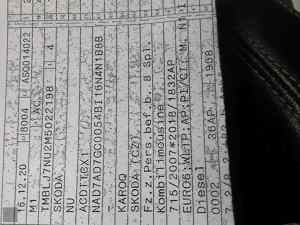 16.12.20 8004 ASO014022
M1 AC
TMBLJ7NU2M5022198 4
SKODA
NU
ACDTTCX1
NAD7AD7GC0054BI16N4N1B8B
-
KAROQ
SKODA (CZ)
Fz.z.Pers.bef.b. 8 Spl.
Kombilimousine
715/2007*2018/1832AP
EURO6;WLTP;AP;PI/CI; M, N1 I
Diesel
0002 36AP 1968